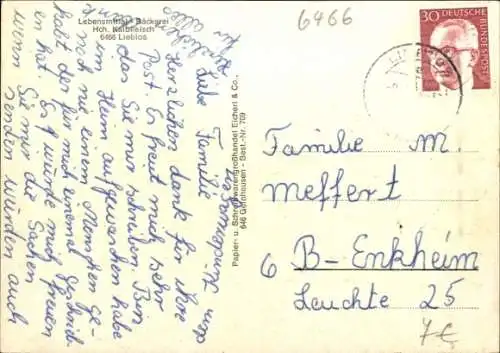 6466
Lebensmittel - Bäckerei
Hch. Kalbfleisch
6466 Lieblos
30 DEUTSCHE BUNDESPOST
Papier- u. Schreibwarengroßhandel Eichert & Co.,
646 Gelnhausen - Best.-Nr. 709
Liebe Familie
Herzlichen dank für Ihre
Post. Es freut mich sehr
das Sie mir schreiben. Bin
im Heim aufgewachsen habe
noch nie einem Menschen ge-
habt der für mich einmal
en hat. Es würde mich freuen
wenn Sie mir die Sachen
senden würden auch
Familie M.
Meffert
6 B-Enkheim
Leuchte 25
7€